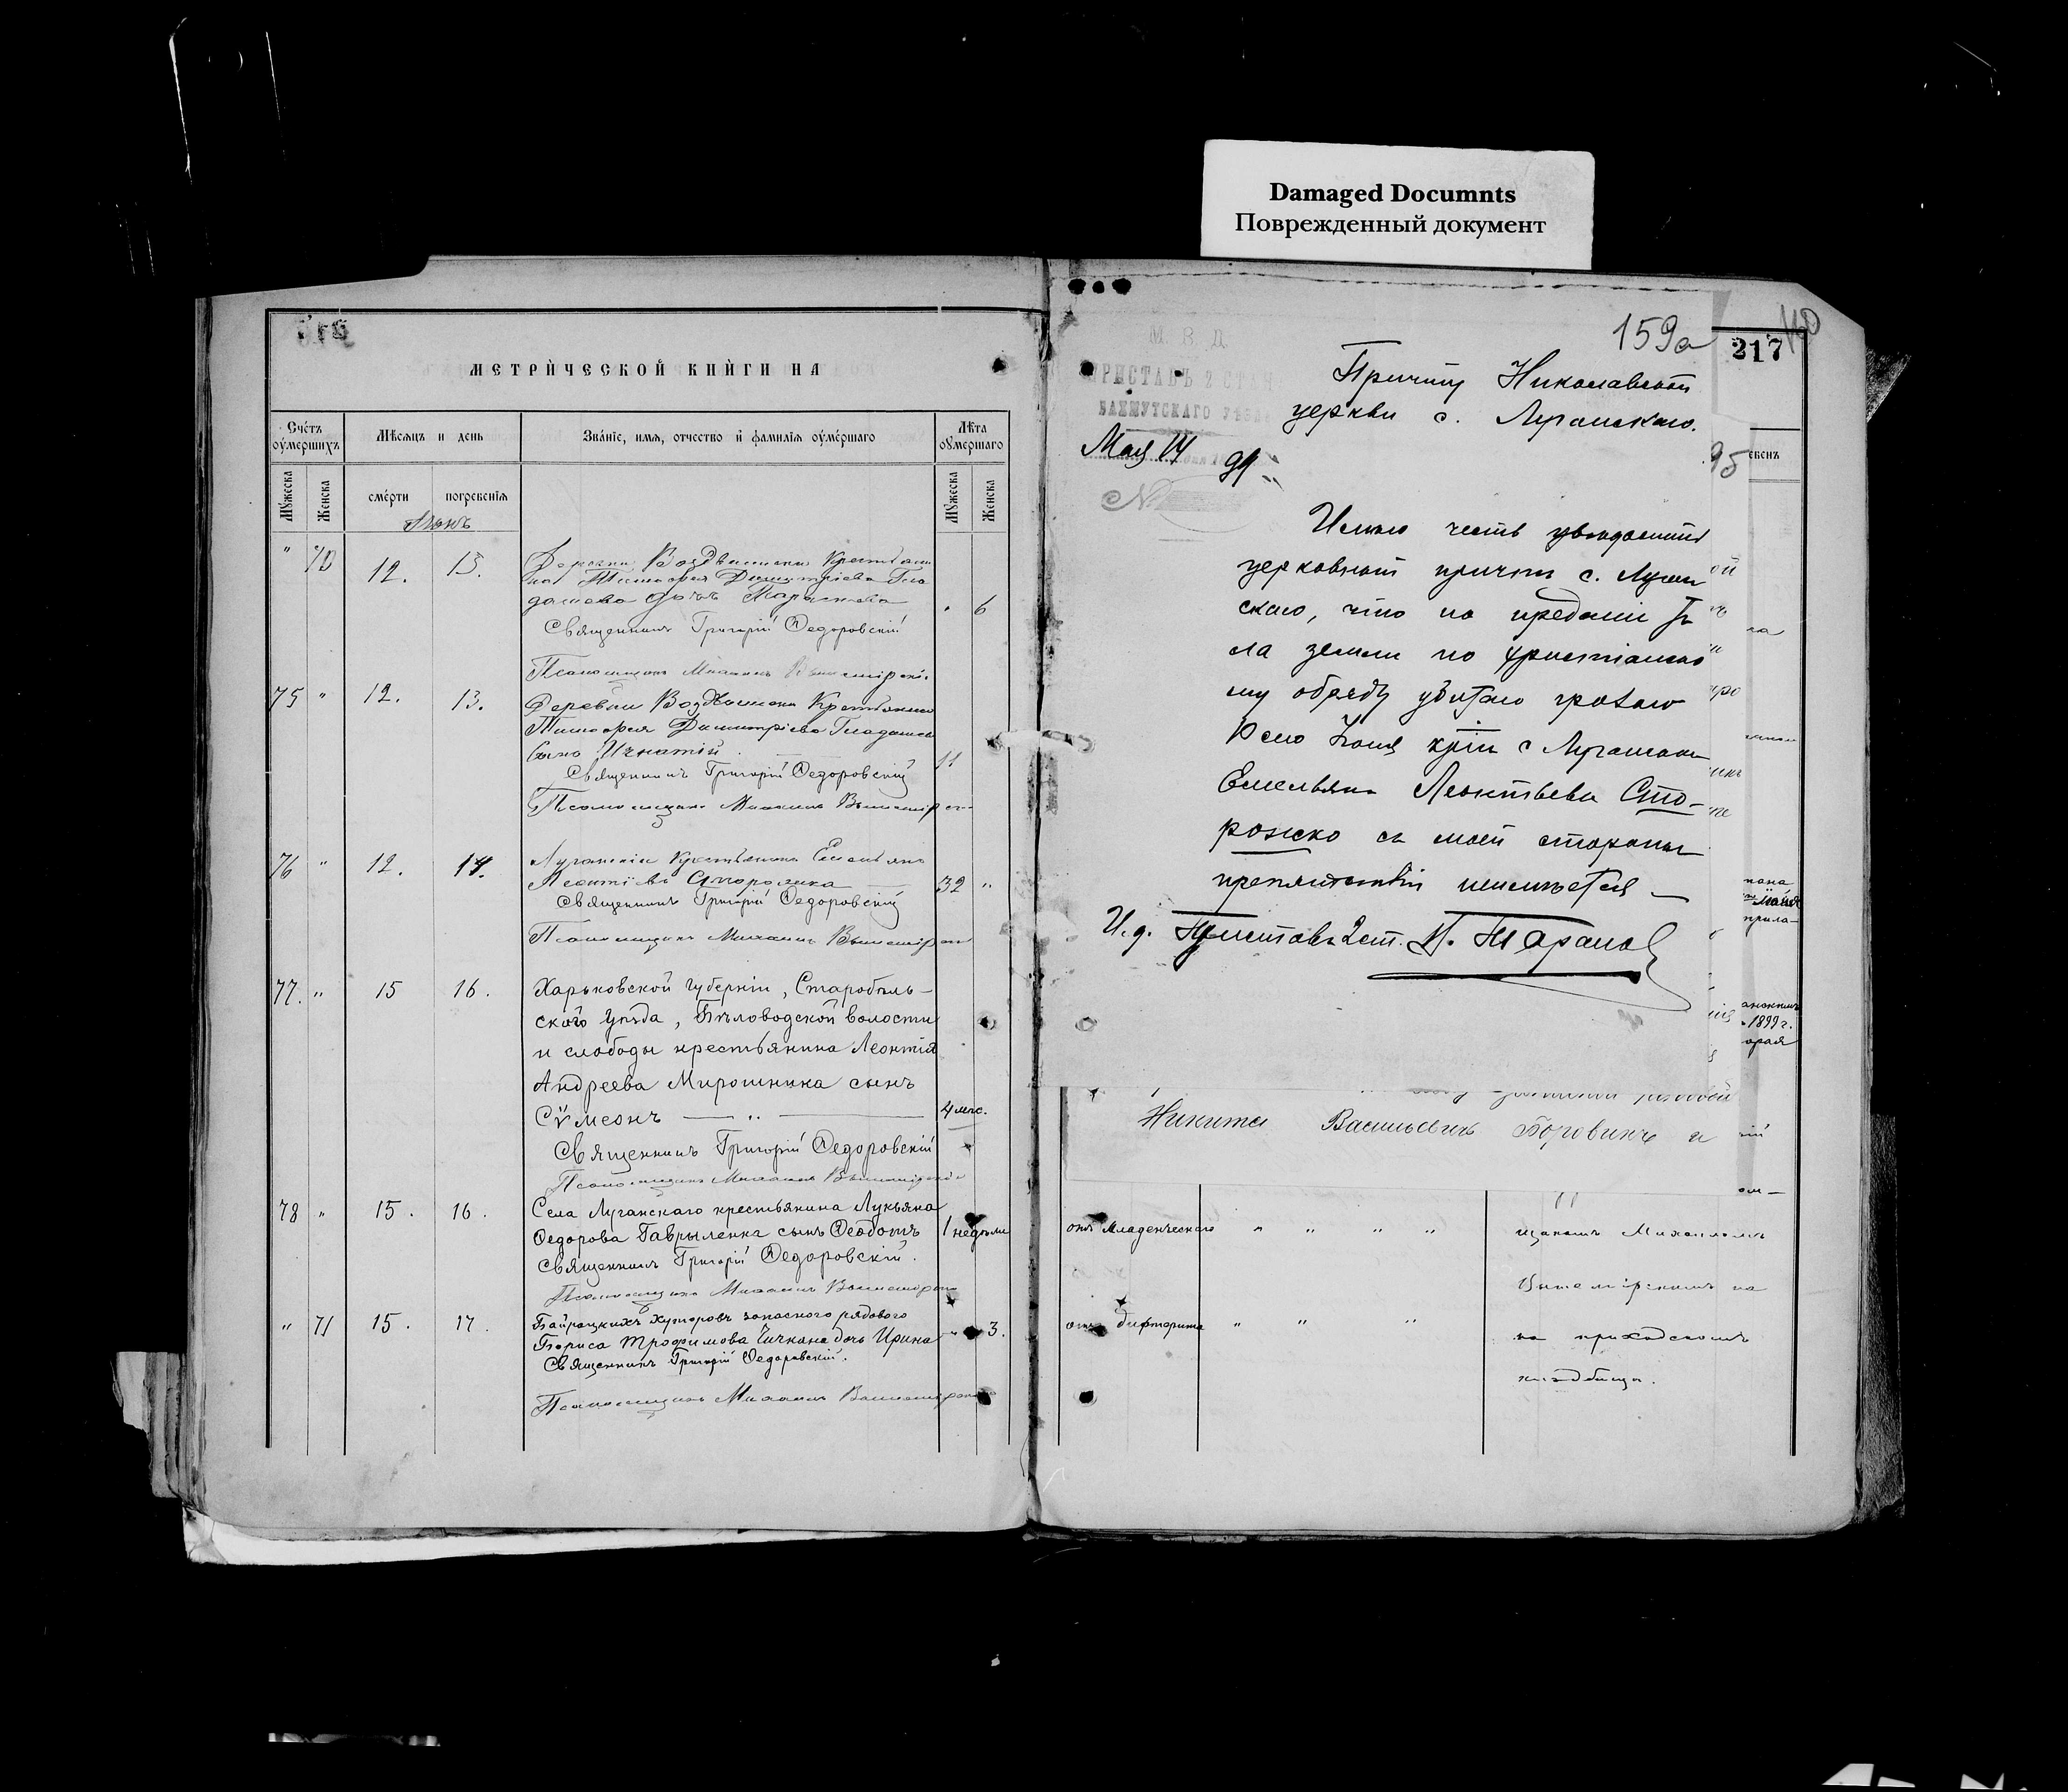 Damaged Documnts
Поврежденный документ
МЕТРИ́ЧЕСКОЙ КНИ́ГИ НА
Счётъ оумершихъ
Мѣсяцъ и день
Зва́нїе, имя, отчество и фамилїя оуме́ршаго
Лѣта оумершаго
Мужеска
Женска
сме́рти
погребенїя
Мужеска
Женска
" 70 12. 13. Деревни Воздвиженки Крестьяни
на Тимофея Димитріева Гла
дашева дочь
Священникъ Григорій Ѳедоровскій
6
Псаломщикъ Михаилъ
75 " 12. 13. Деревни Воздвиженки Крестьянина
Тимофея Димитріева Гладашева
сынъ Игнатій
11
Священникъ Григорій Ѳедоровскій
Псаломщикъ Михаилъ
76 " 12. 14. Луганскій Крестьянинъ Емельянъ
Леонтіевъ Сторожка
32 "
Священникъ Григорій Ѳедоровскій
Псаломщикъ Михаилъ
77. " 15 16. Харьковской губерніи, Старобѣль-
скаго уѣзда, Бѣловодской волости
и слободы крестьянина Леонтія
Андреева Мирошника сынъ
Сѵмеонъ — " —
4 мѣс.
Священникъ Григорій Ѳедоровскій
Псаломщикъ Михаилъ
78 " 15. 16. Села Луганскаго крестьянина Лукьяна
Ѳедорова Гаврыленка сынъ Ѳеодотъ
1 недѣли
Священникъ Григорій Ѳедоровскій.
Псаломщикъ Михаилъ
" 71 15. 17. Байрацкихъ Хуторовъ запасного рядового
Бориса Трофимова Чичкана дочь Ирина
" 3.
Священникъ Григорій Ѳедоровскій.
Псаломщикъ Михаилъ
159а
217
М. В. Д.
ПРИСТАВЪ 2 СТАН
БАХМУТСКАГО УѢЗДА
Мая 14
99
Причту Николаевской
церкви с. Луганскаго.
95
Имѣю честь увѣдомить
церковный причтъ с. Луган
скаго, что на преданіи тѣ
ла земли по христіанско
му обряду убитаго грозою
с Луганскаго
Емельяна Леонтьева Сто-
рожко съ моей стороны
препятствій неимѣется —
И. д. Пристава 2 ст.
Никита Васильевичъ Боровикъ и
1899 г.
отъ Младенческаго " " " "
щикомъ Михаиломъ
на
отъ дифтерита " " "
на приходскомъ
кладбищѣ.